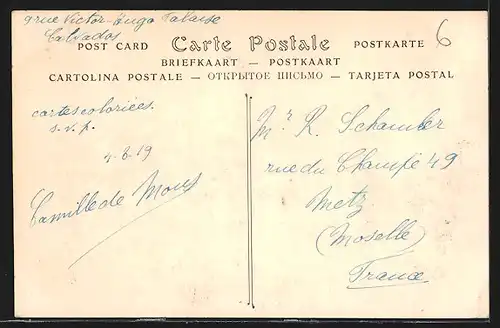 9 rue Victor-Hugo Falaise
Calvados
POST CARD Carte Postale POSTKARTE
6
BRIEFKAART — POSTKAART
CARTOLINA POSTALE — ОТКРЫТОЕ ПИСЬМО — TARJETA POSTAL
cartes coloriées.
s.v.p.
4-8-19
Camille de Mons
Mr R. Schamber
rue du Champé 49
Metz
(Moselle)
France